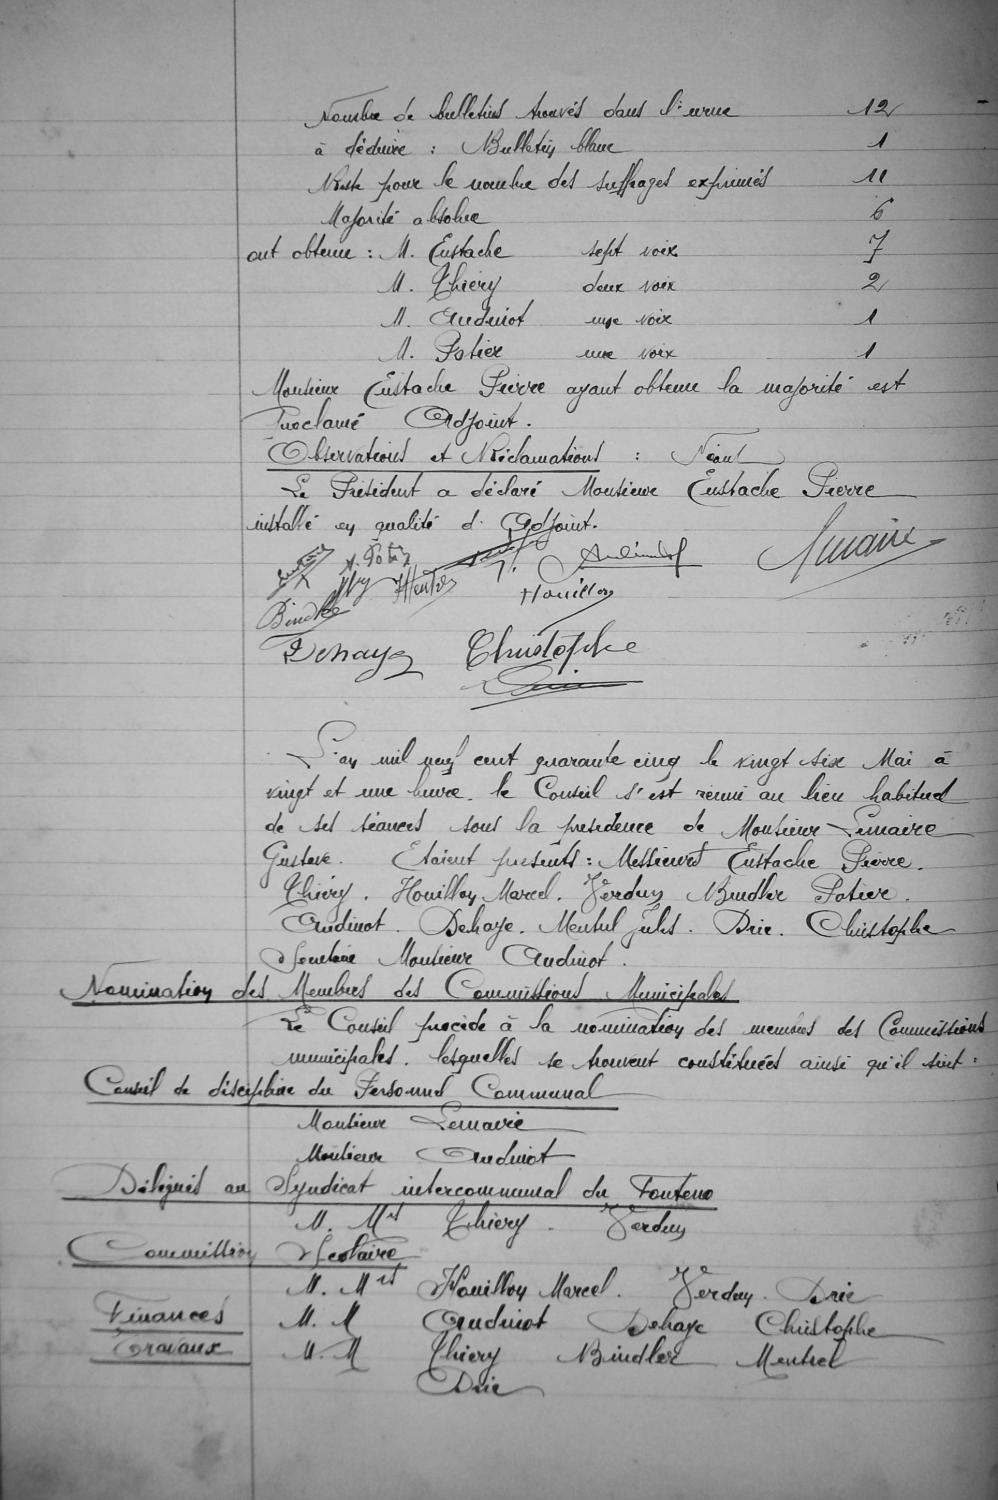 Nombre de bulletins trouvés dans l'urne 12
à déduire : Bulletin blanc 1
Reste pour le nombre des suffrages exprimés 11
Majorité absolue 6
ont obtenu : M. Eustache sept voix 7
M. Thiéry deux voix 2
M. Audinot une voix 1
M. Potier une voix 1
Monsieur Eustache Pierre ayant obtenu la majorité est
Proclamé Adjoint.
Observations et Réclamations : Néant
Le Président a déclaré Monsieur Eustache Pierre
installé en qualité d'Adjoint.
Audinot Lemaire
Houillon
Bindler
Dehaye Christophe
L'an mil neuf cent quarante cinq le vingt six Mai à
vingt et une heure. le Conseil s'est réuni au lieu habituel
de ses séances sous la présidence de Monsieur Lemaire
Gustave. Etaient présents : Messieurs Eustache Pierre.
Thiéry. Houillon Marcel. Verduy Bindler Potier.
Audinot. Dehaye. Mentrel Jules. Drie. Christophe
Secrétaire Monsieur Audinot.
Nomination des Membres des Commissions Municipales
Le Conseil procède à la nomination des membres des Commissions
municipales. lesquelles se trouvent constituées ainsi qu'il suit :
Conseil de discipline du Personnel Communal
Monsieur Lemaire
Monsieur Audinot
Délégués au Syndicat intercommunal du Fonteno
M. Mrs Thiery. Verduy
Commission Scolaire
M. Mrs Houillon Marcel. Verduy. Drie
Finances M. M Audinot Dehaye Christophe
Travaux M. M Thiery Bindler Mentrel
Drie